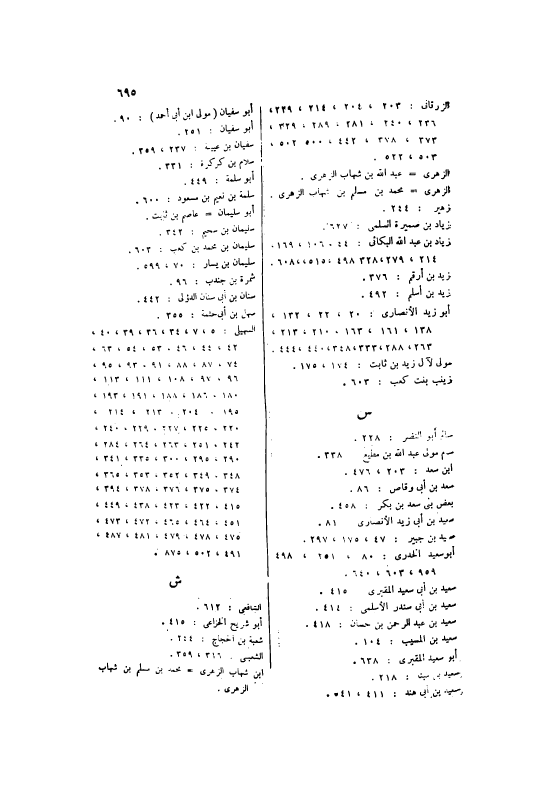 ٦٩٥
الزرقاني : ٢٠٣ ، ٢٠٤ ، ٢١٤ ، ٢٢٩،
٢٣٦ ، ٢٤٠ ، ٢٨١ ، ٢٨٩ ، ٣٢٩ ،
٣٧٣ ، ٣٧٨ ، ٤٤٢ ، ٥٠٠ ٥٠٢ ،
٥٠٣ ، ٥٢٢ .
الزهرى = عبد الله بن شهاب الزهرى .
الزهرى = محمد بن مسلم بن شهاب الزهرى .
زهير : ٢٤٤ .
زياد بن صميرة السلمى : ٦٢٧ .
زياد بن عبد الله البكائى : ٤٤ ، ١٠٦ ، ١٦٩،
٢١٤ ، ٢٧٩ ،٣٢٨ ٤٩٨ ،٥١٥ ،٦٠٨ .
زيد بن أرقم : ٣٧٦ .
زيد بن أسلم : ٤٩٢ .
أبو زيد الأنصارى : ٢٠ ، ٢٢ ، ١٣٢ ،
١٣٨ ، ١٦١ ، ١٦٣ ، ٢١٠ ، ٢١٣ ،
٢٦٣ ،٢٨٨ ،٣٣٣ ،٣٤٨ ،٤٤٠ ،٤٤٤ .
مولى لآل زيد بن ثابت : ١٧٤ ، ١٧٥ .
زينب بنت كعب : ٦٠٣ .
س
سالم أبو النضر : ٢٢٨ .
عبد الله بن مطيع ٣٣٨ .
ابن سعد : ٢٠٣ ، ٤٧٦ .
سعد بن أبى وقاص : ٨٦ .
بعض بنى سعد بن بكر : ٤٥٨ .
سعيد بن أبى زيد الأنصارى ٨١ .
سعيد بن جبير : ٤٧ ، ١٧٥ ، ٢٩٧ .
أبو سعيد الخدرى : ٨٠ ، ٢٥١ ، ٤٩٨
٩٥٩ ، ٦٠٣ ، ٦٤٠ .
سعيد بن أبى سعيد المقبرى ٤١٥ .
سعيد بن أبى سندر الأسلمى : ٤١٤ .
سعيد بن عبد الرحمن بن حسان : ٤١٨ .
سعيد بن المسيب : ١٠٤ .
أبو سعيد المقبرى : ٦٣٨ .
سعيد بن : ٢١٨ .
سعيد بن أبى هند : ٤١١ ، ٥٤١ .
أبو سفيان ( مولى ابن أبى أحمد ) : ٩٠ .
أبو سفيان : ٢٥١ .
سفيان بن عيينة : ٢٣٧ ، ٣٥٩ .
سلام بن كركرة : ٣٣١ .
أبو سلمة : ٤٤٩ .
سلمة بن نعيم بن مسعود : ٦٠٠ .
أبو سليمان = عاصم بن ثابت .
سليمان بن سحيم : ٣٤٢ .
سليمان بن محمد بن كعب : ٦٠٣ .
سليمان بن يسار : ٧٠ ، ٥٩٩ .
سمرة بن جندب : ٩٦ .
سنان بن أبى سنان الدؤلى : ٤٤٢ .
سهل بن أبى حثمة : ٣٥٥ .
السهيلى : ٥ ، ٧ ، ٣٤ ، ٣٦ ، ٣٩ ، ٤٠ ،
٤٢ ، ٤٤ ، ٤٦ ، ٥٣ ، ٥٤ ، ٦٣ ،
٧٤ ، ٨٧ ، ٨٨ ، ٩١ ، ٩٣ ، ٩٥ ،
٩٦ ، ٩٧ ، ١٠٨ ، ١١١ ، ١١٣ ،
١٨٠ ، ١٨٦ ، ١٨٨ ، ١٩١ ، ١٩٣ ،
١٩٥ ، ٢٠٤ ، ٢١٣ ، ٢١٤ ،
٢٢٠ ، ٢٢٥ ، ٢٢٧ ، ٢٢٩ ، ٢٤٠ ،
٢٤٢ ، ٢٥١ ، ٢٦٣ ، ٢٦٤ ، ٢٨٤ ،
٢٩٠ ، ٢٩٥ ، ٣٠٠ ، ٣٣٥ ، ٣٤١ ،
٣٤٨ ، ٣٤٩ ، ٣٥٢ ، ٣٥٣ ، ٣٦٥ ،
٣٧٤ ، ٣٧٥ ، ٣٧٦ ، ٣٧٨ ، ٣٩٤ ،
٤١٥ ، ٤٢٢ ، ٤٢٣ ، ٤٣٨ ، ٤٤٩ ،
٤٥١ ، ٤٦٤ ، ٤٦٥ ، ٤٧٢ ، ٤٧٣ ،
٤٧٥ ، ٤٧٨ ، ٤٧٩ ، ٤٨١ ، ٤٨٧ ،
٤٩١ ، ٥٠٢ ، ٨٧٥ .
ش
الشافعى : ٦١٢ .
أبو شريح الخزاعى : ٤١٥ .
شعبة بن الحجاج : ٢٤٤ .
الشعبى . ٣١٦ ، ٣٥٩ .
ابن شهاب الزهرى = محمد بن مسلم بن شهاب
الزهرى .